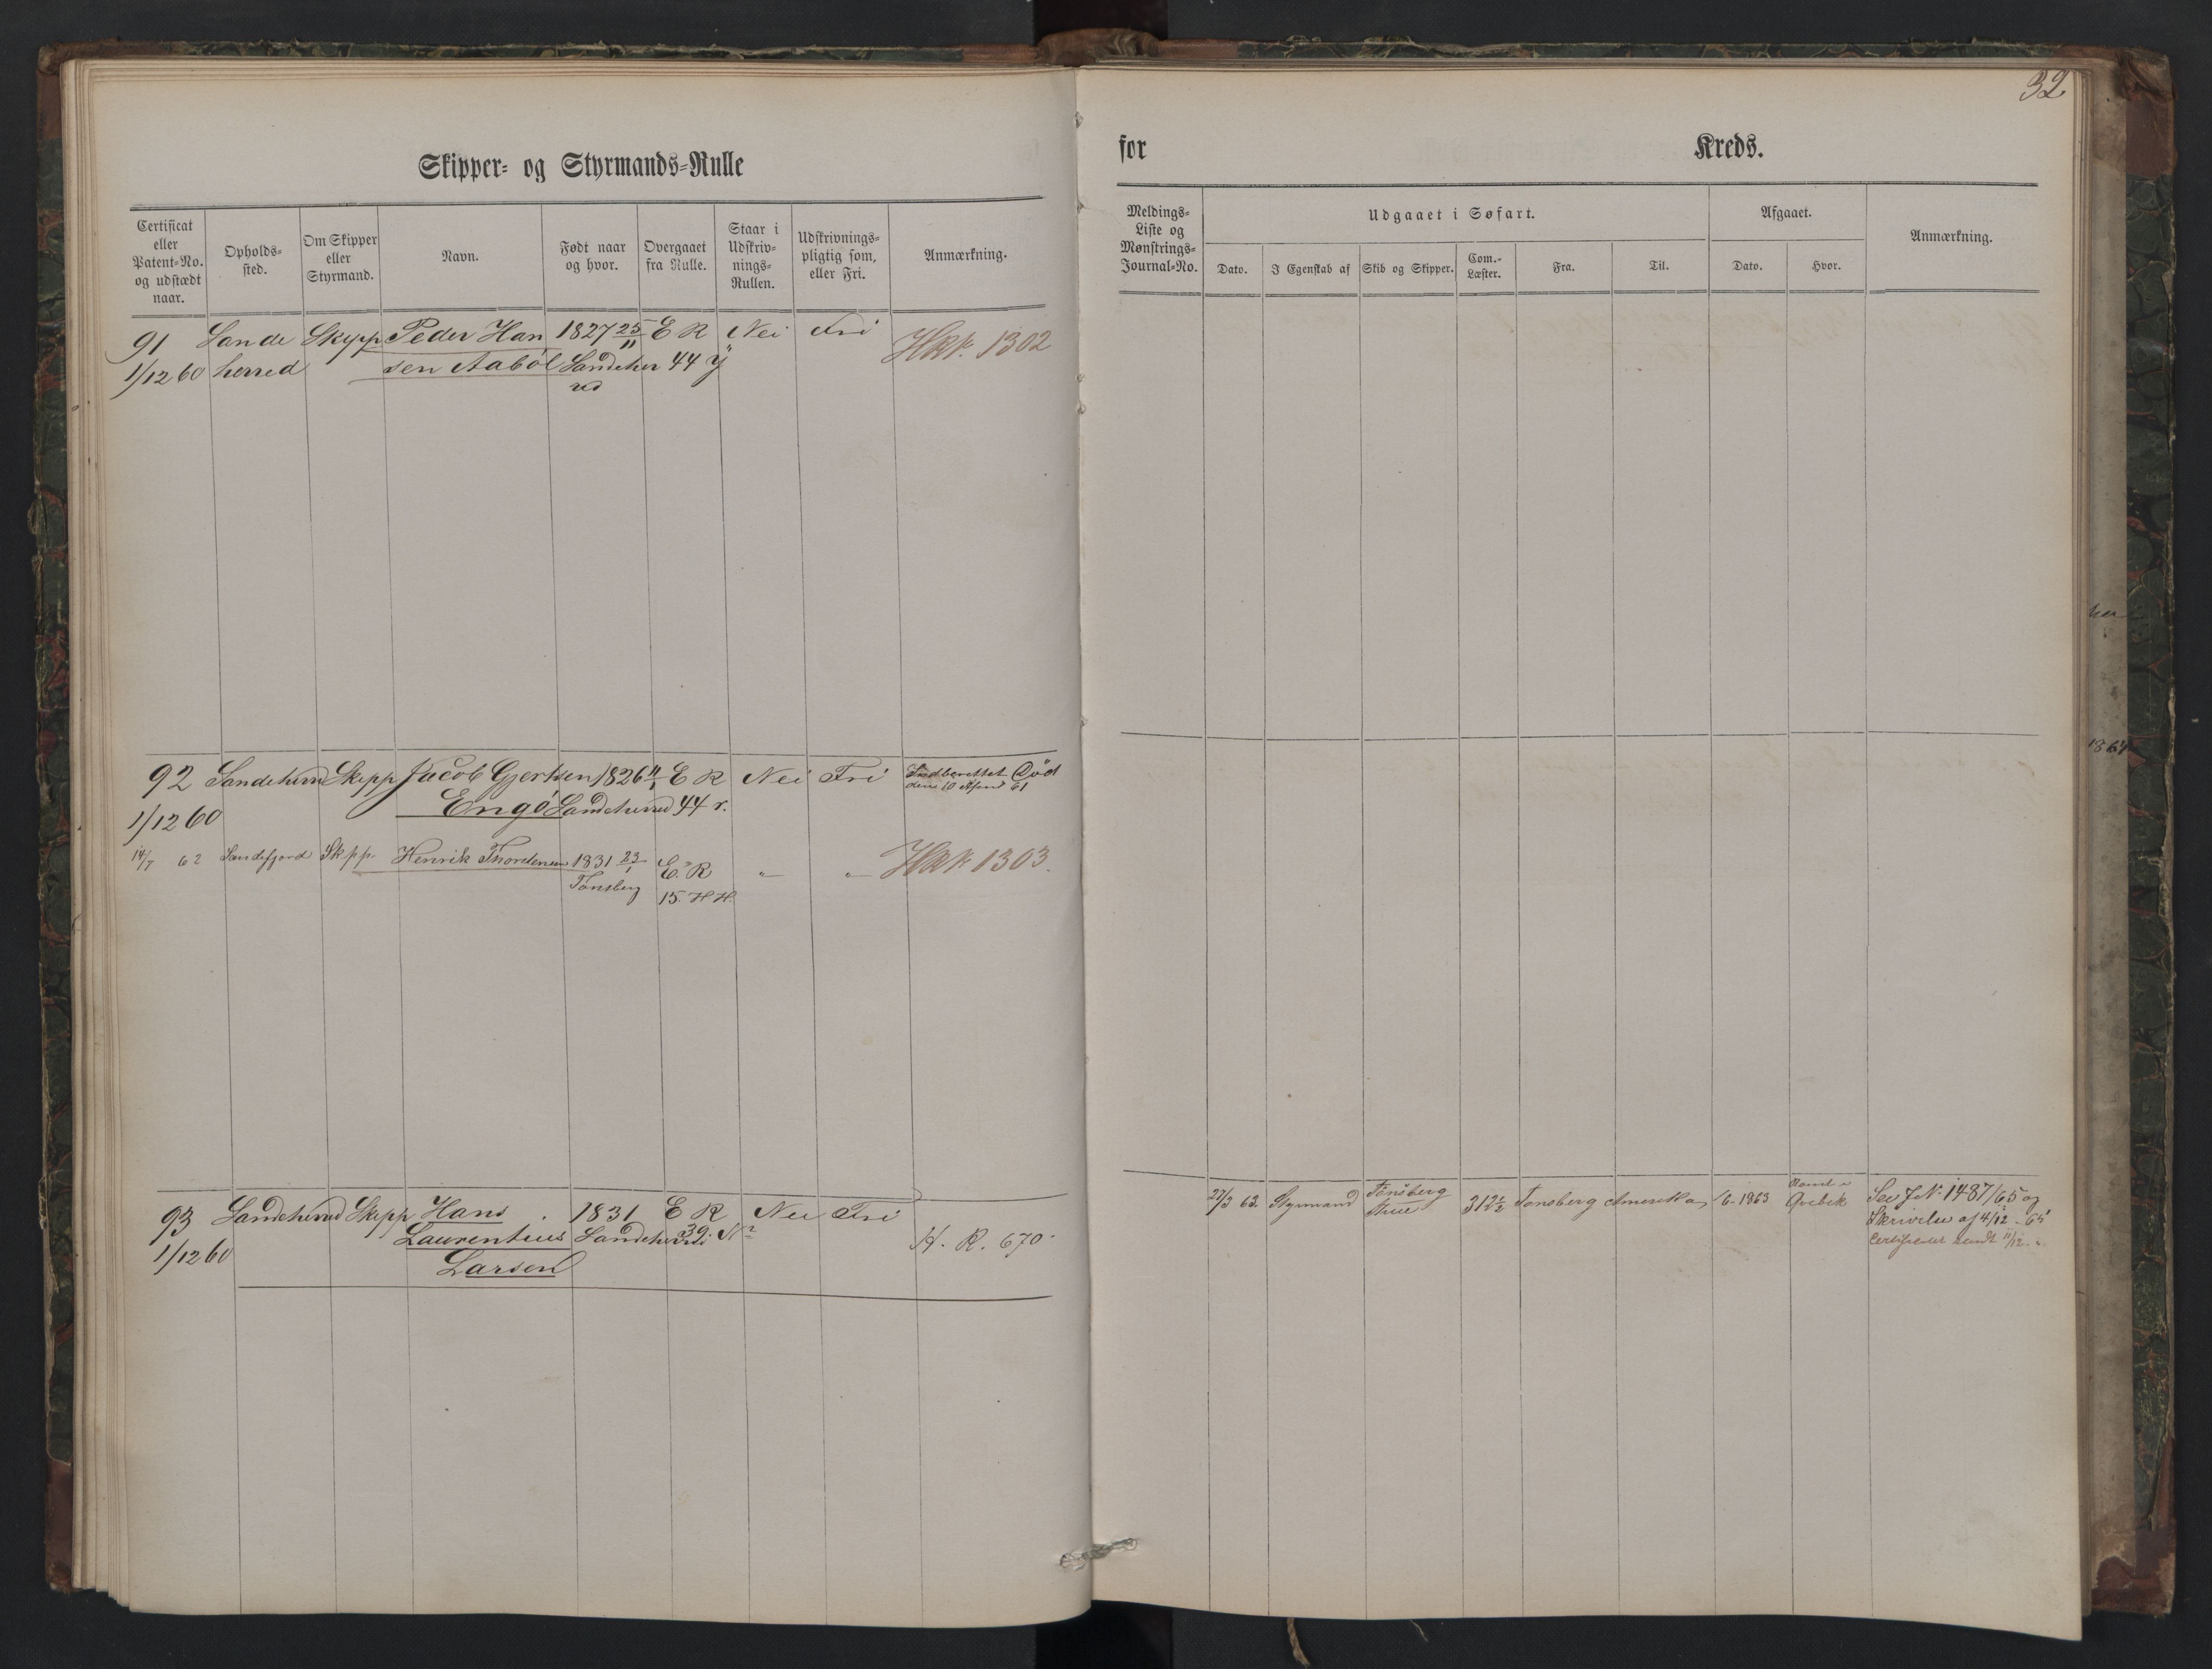 32
Skipper- og Styrmands-Rulle
for Kreds.
Certificat eller Patent-No. og udstædt naar.
Opholds-sted.
Om Skipper eller Styrmand.
Navn.
Født naar og hvor.
Overgaaet fra Rulle.
Staar i Udskriv-nings-Rullen.
Udskrivnings-pligtig som, eller Fri.
Anmærkning.
Meldings-Liste og Mønstrings-Journal-No.
Udgaaet i Søfart.
Afgaaet.
Dato.
I Egenskab af
Skib og Skipper.
Com.-Læster.
Fra.
Til.
Dato.
Hvor.
Anmærkning.
91 Sande Skipp Peder Han 1827 25/11 E R Nei Fri Hkk. 1302
1/12 60 herred sen Aabøl Sandeher 44 y
red
92 Sandeherred Skipp Jacob Gjertsen 1826 11/1 E R Nei Fri Indberettet Død
Engø Sandeherred 44 r. den 10 April 61
1/12 60
14/7 62 Sandefjord Skpp. Henrik Thordensen 1831 23/1 E. R " " Hkk 1303.
Tønsberg 15. H H.
93 Sandeherred Skipp Hans 1831 E R Nei Fri
Laurentius Sandeherred 39. H. R. 670.
1/12 60 Larsen
27/3 62. Styrmand Tønsberg 31 2½ Tønsberg Amerika 1/6-1863 Qvebek See J N. 1487/65 og
Skrivelse af 4/12 - 65
Certificatet sendt 11/12 "
her
1864